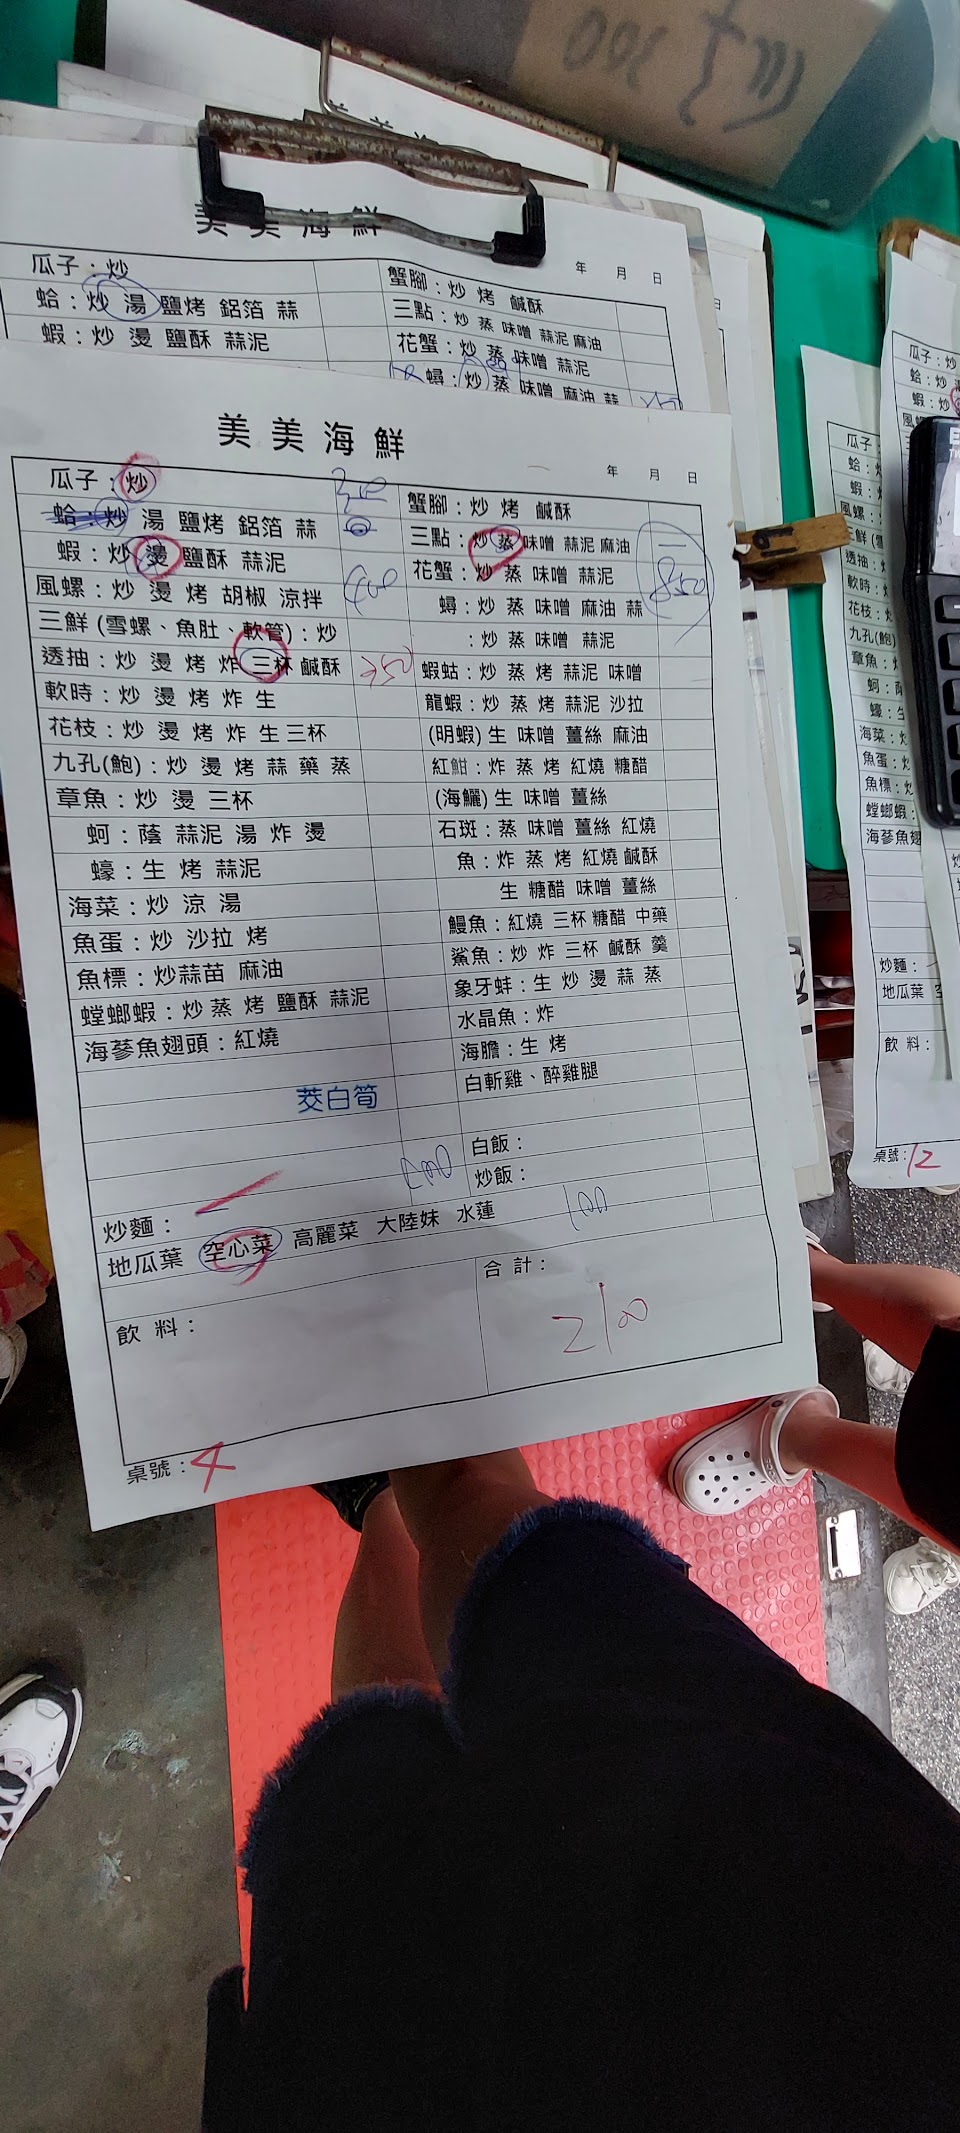 美美海鮮
年 月 日
瓜子：炒
蛤：炒 湯 鹽烤 鋁箔 蒜
蝦：炒 燙 鹽酥 蒜泥
蟹腳：炒 烤 鹹酥
三點：炒 蒸 味噌 蒜泥 麻油
花蟹：炒 蒸 味噌 蒜泥
蟳：炒 蒸 味噌 麻油 蒜
美美海鮮
年 月 日
瓜子：炒
蛤：炒 湯 鹽烤 鋁箔 蒜
蝦：炒 燙 鹽酥 蒜泥
400
風螺：炒 燙 烤 胡椒 涼拌
三鮮 (雪螺、魚肚、軟管)：炒
透抽：炒 燙 烤 炸 三杯 鹹酥
250
軟時：炒 燙 烤 炸 生
花枝：炒 燙 烤 炸 生 三杯
九孔(鮑)：炒 燙 烤 蒜 藥 蒸
章魚：炒 燙 三杯
蚵：蔭 蒜泥 湯 炸 燙
蠔：生 烤 蒜泥
海菜：炒 涼 湯
魚蛋：炒 沙拉 烤
魚標：炒蒜苗 麻油
螳螂蝦：炒 蒸 烤 鹽酥 蒜泥
海蔘魚翅頭：紅燒
茭白筍
蟹腳：炒 烤 鹹酥
三點：炒 蒸 味噌 蒜泥 麻油
850
花蟹：炒 蒸 味噌 蒜泥
蟳：炒 蒸 味噌 麻油 蒜
：炒 蒸 味噌 蒜泥
蝦蛄：炒 蒸 烤 蒜泥 味噌
龍蝦：炒 蒸 烤 蒜泥 沙拉
(明蝦) 生 味噌 薑絲 麻油
紅魽：炸 蒸 烤 紅燒 糖醋
(海鱺) 生 味噌 薑絲
石斑：蒸 味噌 薑絲 紅燒
魚：炸 蒸 烤 紅燒 鹹酥
生 糖醋 味噌 薑絲
鰻魚：紅燒 三杯 糖醋 中藥
鯊魚：炒 炸 三杯 鹹酥 羹
象牙蚌：生 炒 燙 蒜 蒸
水晶魚：炸
海膽：生 烤
白斬雞、醉雞腿
白飯：
炒飯：
炒麵：
地瓜葉 空心菜 高麗菜 大陸妹 水蓮
100
飲料：
合計：
2100
桌號：4
瓜子：炒
蛤：炒
蝦：炒
瓜子
蛤：
蝦：
風螺：
透抽：
軟時：
花枝：
九孔(鮑)
章魚：
蚵：
蠔：生
海菜：
魚蛋：
魚標：
螳螂蝦：
海蔘魚翅
炒麵：
地瓜葉
飲料：
桌號：12